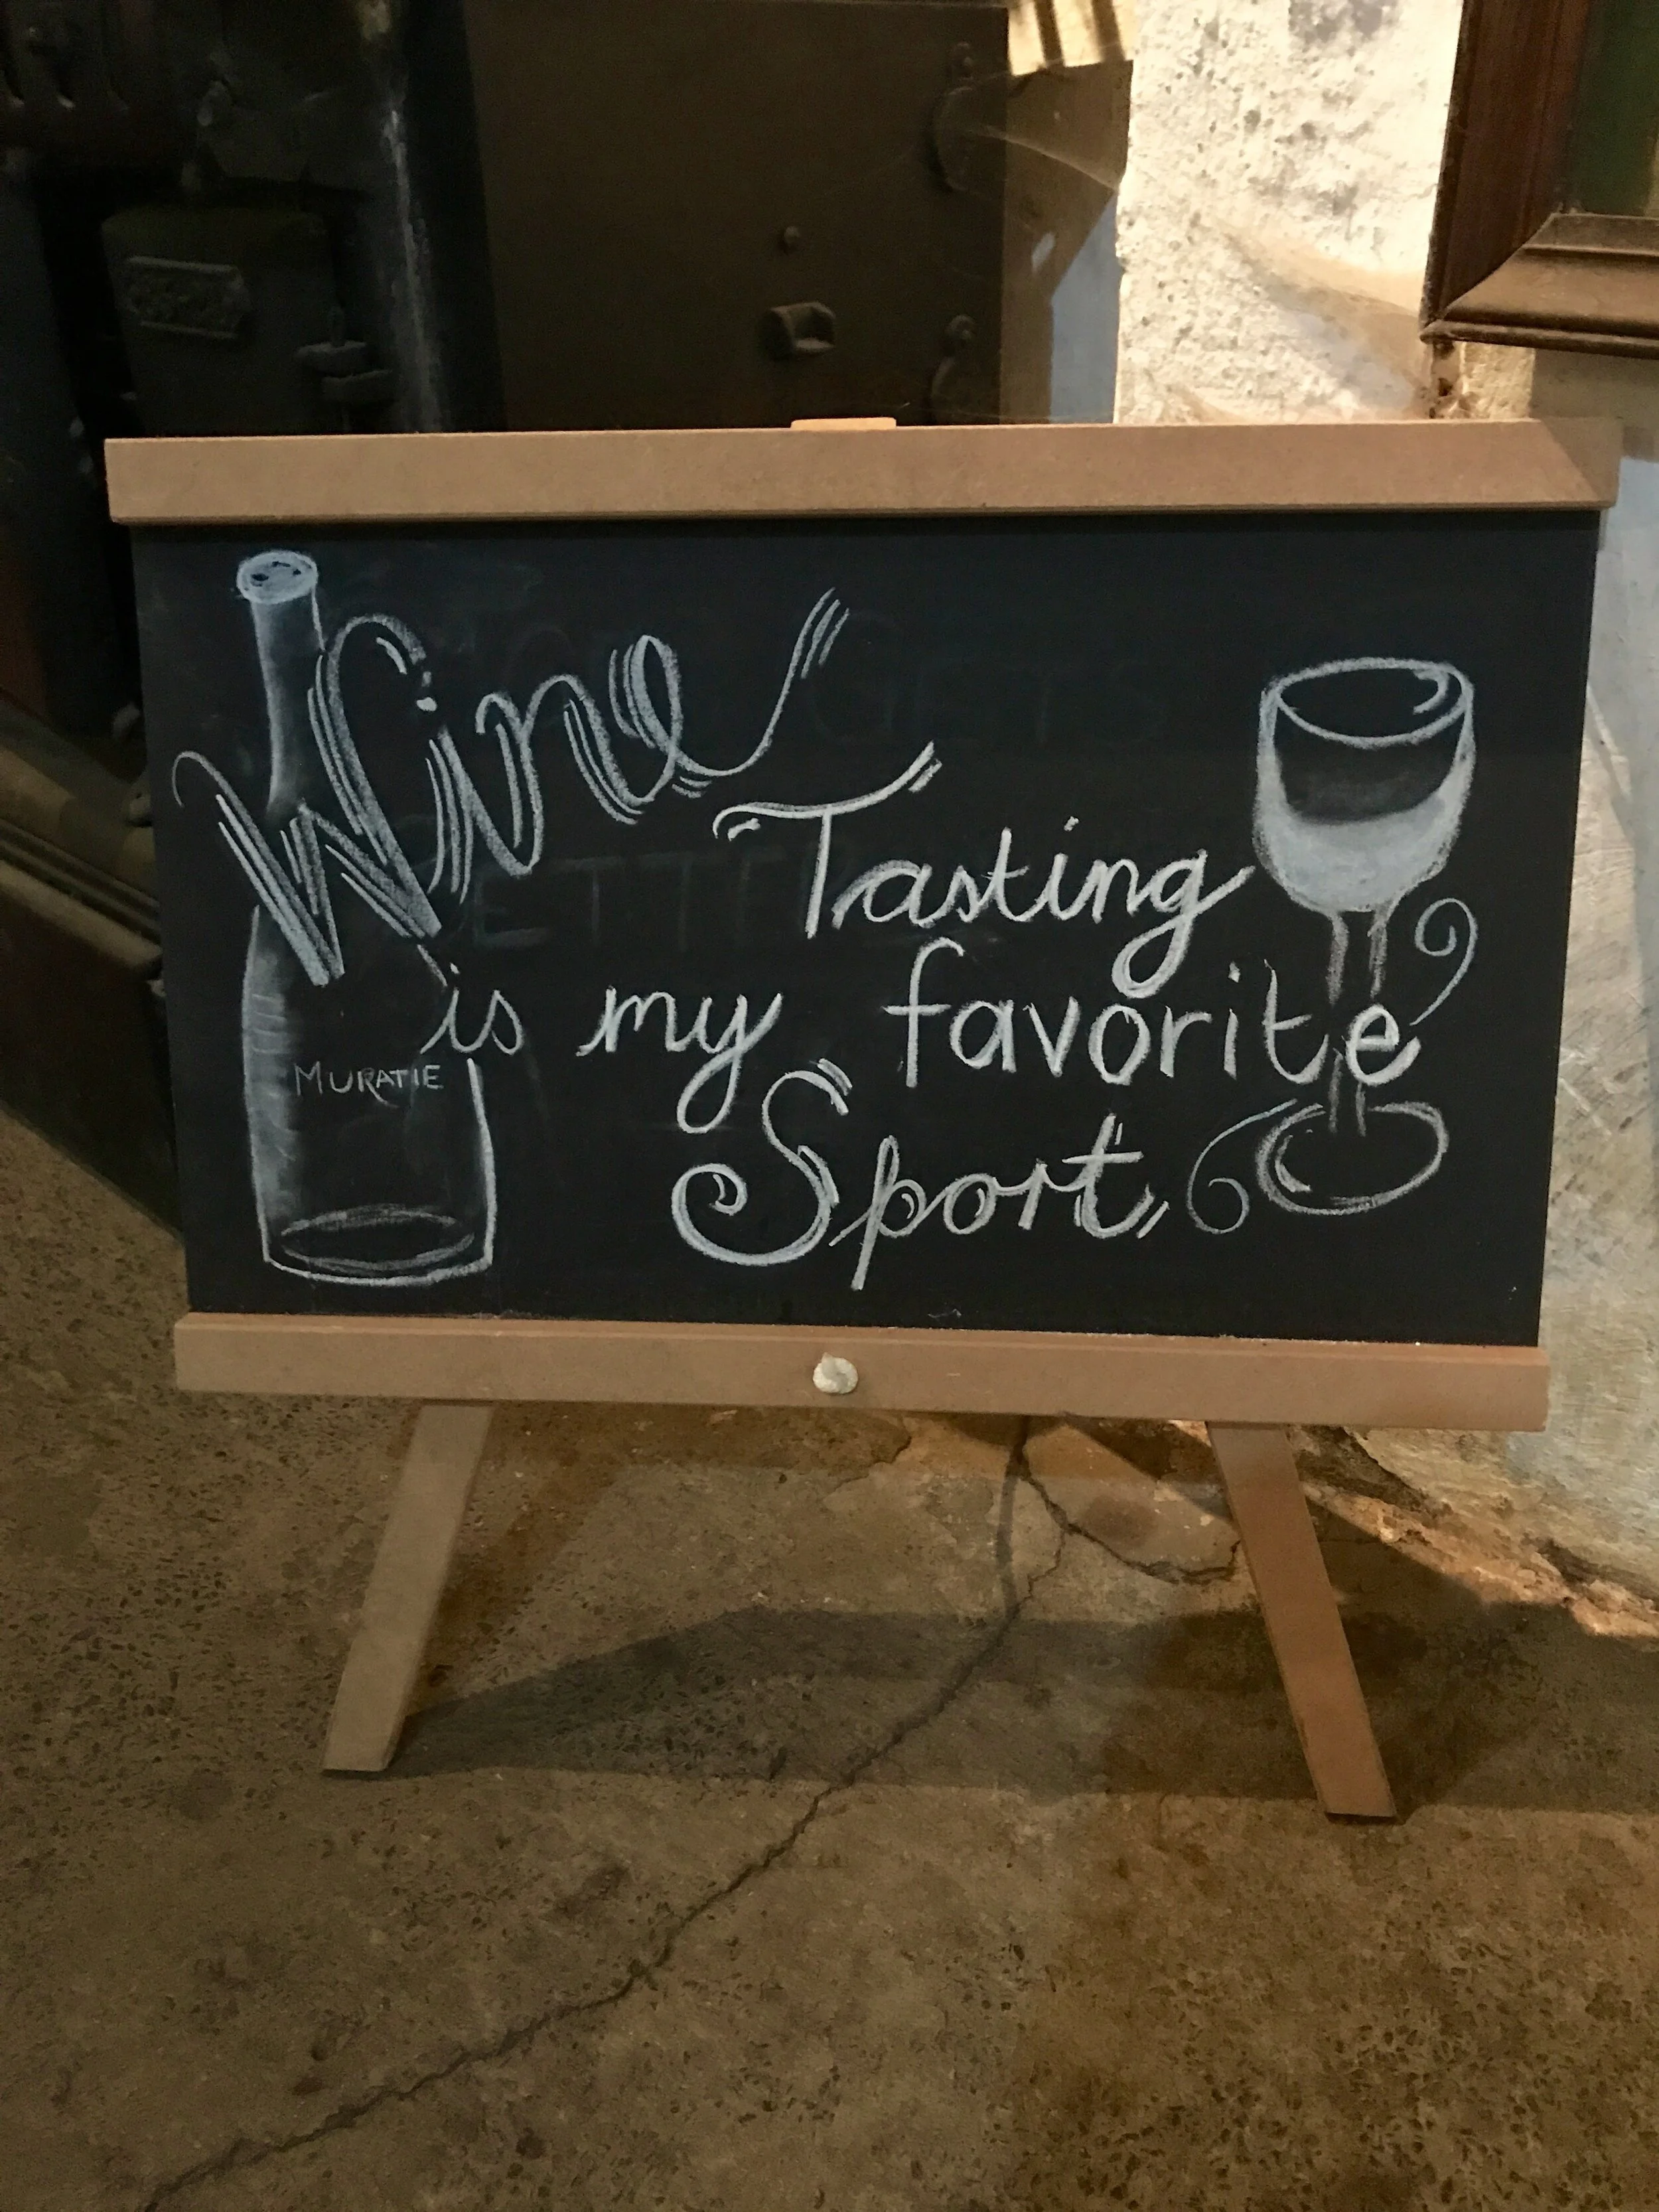 Wine
Tasting
is my favorite
MURATIE
Sport